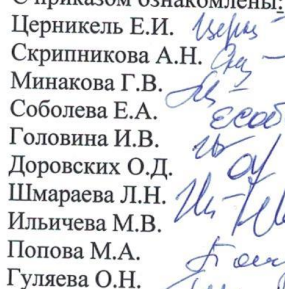 С приказом ознакомлены:
Церникель Е.И.
Скрипникова А.Н.
Минакова Г.В.
Соболева Е.А.
Головина И.В.
Доровских О.Д.
Шмараева Л.Н.
Ильичева М.В.
Попова М.А.
Гуляева О.Н.